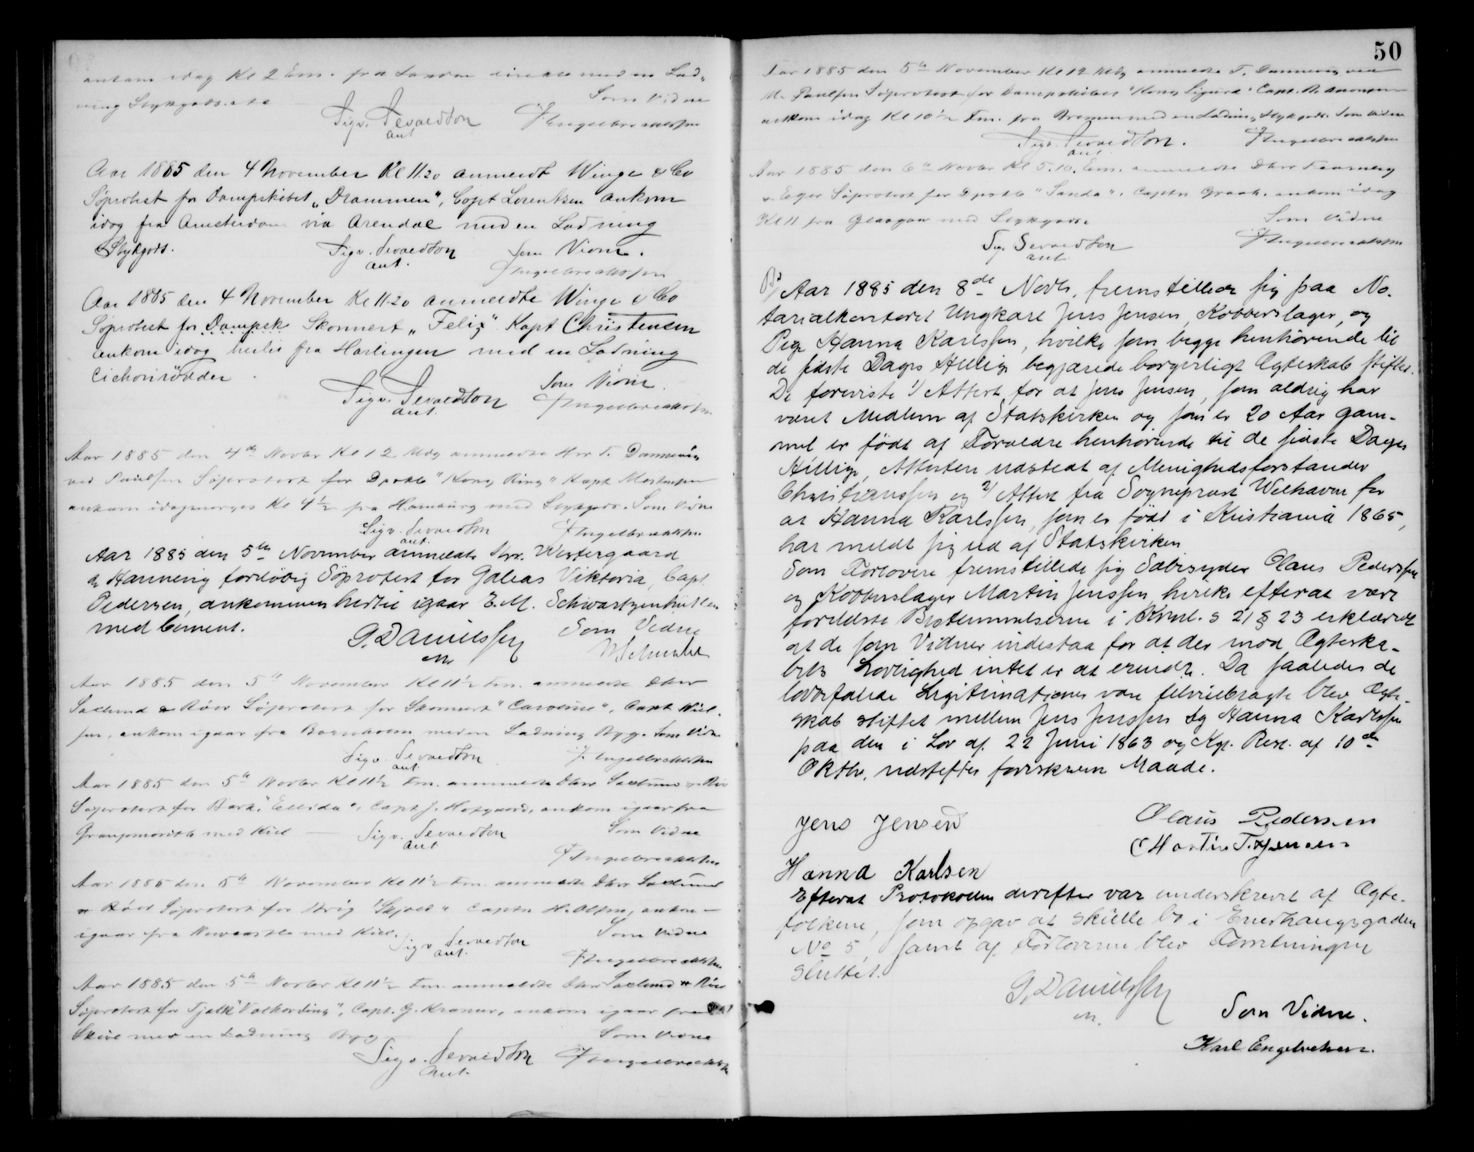 ankom idag Kl 2 Em. fra London direkte med en Lad-
ning Stykgods etc
Som Vidne
Sigv. Sevaldson
aut
J Engelbrecktsen
Aar 1885 den 4 November Kl 11 20 anmeldt Winge & Co
Søprotest for Dampskibet „Drammen", Capt Lorentzen ankom
idag fra Amsterdam via Arendal med en Ladning
Stykgods.
Sigv. Sevaldson
aut.
Som Vidne.
J Engelbrecktsen
Aar 1885 den 4 November Kl 11.20 anmeldte Winge & Co
Søprotest for Dampsk Skonnert „Felix" Kapt Christensen
ankom idag hertil fra Harlingen med en Ladning
Cichorirødder.
Sigv. Sevaldson
aut
Som Vidne.
J Engelbrecktsen
Aar 1885 den 4de Novbr Kl 12 Mdg anmeldte Hrr T. Dannevig
ved Paulsen Søprotest for Dpskb "Kong Ring" Kapt Mortensen
ankom idagmorges Kl 4½ fra Hamburg med Stykgods. Som Vidne
Sigv. Sevaldson
aut.
J Engelbrecktsen
Aar 1885 den 5te November anmeldte Hrr. Westergaard
& Hannevig forløbig Søprotest for Galeas Viktoria, Capt.
Pedersen, ankommen hertil igaar E.M. Schwartzenhutten
med Cement.
G. Danielssen
m
Som Vidne
Aar 1885 den 5te November Kl 11½ Fm. anmeldte Dhrr
Saxlund & Röer Søprotest for Skonnert "Caroline", Capt. Niel-
sen, ankom igaar fra Bornholm med en Ladning Byg. Som Vidne
Sigv. Sevaldson
aut
J. Engelbrecktsen
Aar 1885 den 5te Novbr Kl 11½ Fm. anmeldte Dhrr Saxlund & Röer
Søprotest for Bark. "Ellida", Capt J. ankom igaar fra
Grangemouth med Kul
Sigv. Sevaldson
aut
Som Vidne
J Engelbrecktsen
Aar 1885 den 5te November Kl 11½ Fm. anmeldte Dhrr Saxlund
& Röer Søprotest for Brig "Skjold" Captn H. Olsen, ankom
igaar fra Newcastle med Kul.
Sigv. Sevaldson
aut.
Som Vidne
J Engelbrecktsen
Aar 1885 den 5te Novbr Kl 11½ Fm anmeldte Dhrr Saxlund & Röer
Søprotest for Tjalk Capt. G. Kramer, ankom igaar fra
Skive med en Ladning Byg
Sigv. Sevaldson
aut.
Som Vidne
J Engelbrecktsen
50
Aar 1885 den 5te November Kl 12 Mdg anmeldte T. Dannevig ved
M. Paulsen Søprotest for Dampskibet "Kong Sigurd" Capt.
ankom idag Kl 10½ Fm. fra Bremen med en Ladning Stykgods. Som Vidne
Sigv. Sevaldson.
aut
J Engelbrecktsen
Aar 1885 den 6te Novbr Kl 5.10. Em. anmeldte Dhrr Fearnley
& Eger Søprotest for Dpskb "Sanda", Captn ankom idag
Kl 11 fra Glasgow med Stykgods.
Som Vidne
Sigv. Sevaldson
aut
J Engelbrecktsen
Aar 1885 den 8de Novbr. fremstillede sig paa No-
tarialkontoret Ungkarl Jens Jensen, Kobberslager, og
Pige Hanna Karlssen, hvilke som begge henhørende til
de sidste Dages Hellige begjærede borgerligt Ægteskab stiftet.
De foreviste 1/ Attest for at Jens Jensen, som aldrig har
været Medlem af Statskirken og som er 20 Aar gam-
mel er født af Forældre henhørende til de sidste Dages
Hellige, Attesten udstedt af Menighedsforstander
Christianssen og 2/ Attest fra Sogneprest Welhaven for
at Hanna Karlssen, som er født i Kristiania 1865,
har meldt sig ud af Statskirken
Som Forlovere fremstillede sig Sæbesyder Olaus Pederssen
og Kobberslager Martin Jenssen, hvilke efterat være
forelæste Bestemmelserne i Kriml. § 21 § 23 erklærede
at de som Vidner indestaa for at der mod Ægteska-
bets Lovlighed intet er at erindre. Da saaledes de
lovbefalede Legitimationer vare tilveiebragte blev Ægte-
skab stiftet mellem Jens Jenssen og Hanna Karlssen
paa den i Lov af 22 Juni 1863 og Kgl. Resl. af 10de
Oktbr. næstefter foreskrevne Maade.
Jens Jensen
Olaus Pedersen
Martin T. Jensen
Hanna Karlsen
Efterat Protokollen derefter var underskrevet af Ægte-
folkene, som opgav at skulle bo i Enerhaugsgaden
No 5, samt af Forloverne blev Forretningen
sluttet.
G. Danielssen
m.
Som Vidne.
Karl Engelvetsen.